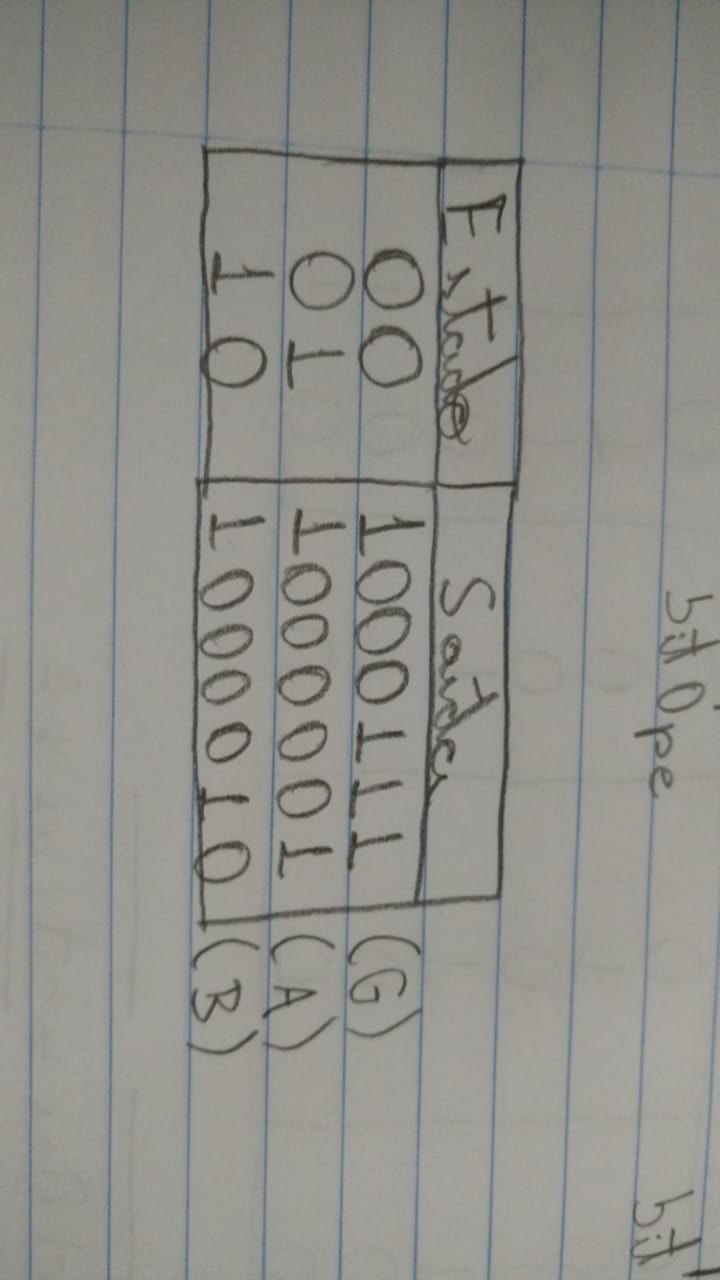 bit Ope bit
Estado Saída
00 1000111 (G)
01 1000001 (A)
10 1000010 (B)